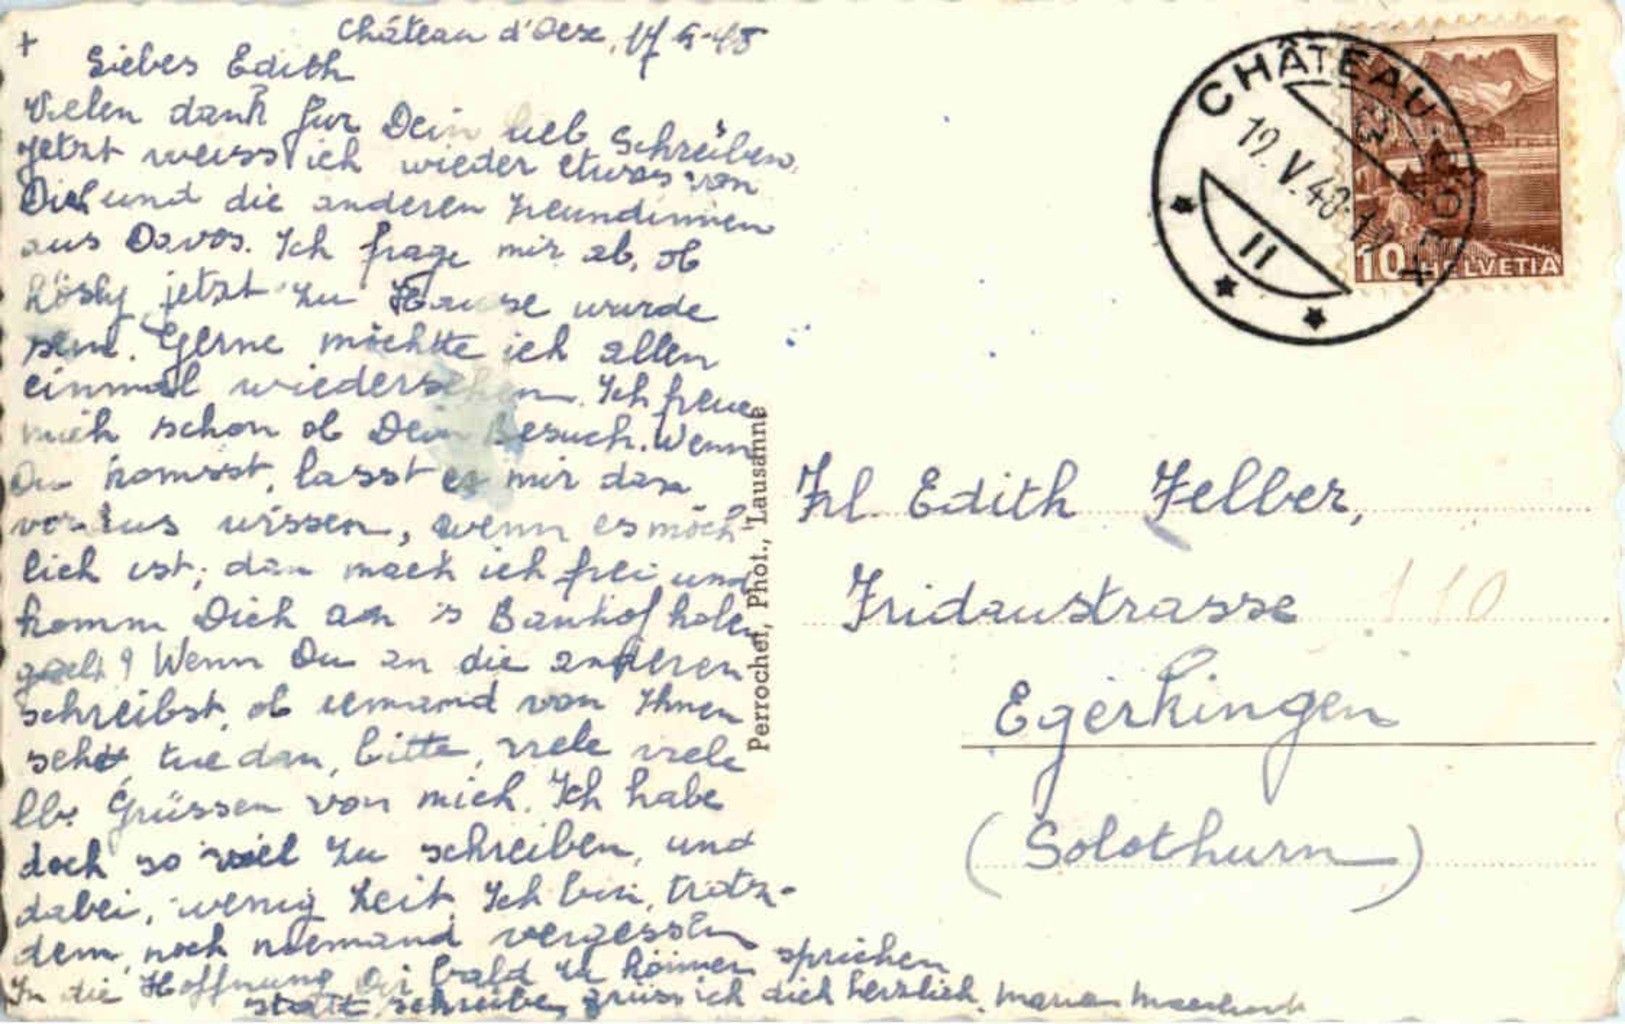 +
Château d'Oex, 17-5-48
Liebes Edith
Vielen dank für Dein lieb Schreiben,
Jetzt weiss ich wieder etwas von
Dich und die anderen Freundinnen
aus Davos. Ich frage mir ab, ob
Rösly jetzt zu Hause wurde
sein. Gerne möchtte ich allen
einmal wiedersehen. Ich freue
mich schon ob Dein Besuch. Wenn
Du komsst, lasst es mir dan
voraus wissen, wenn es möch
lich ist; dan mach ich frei und
komm Dich an 's Banhof holen
gelt? Wenn Du an die anderen
schreibst, ob iemand von Ihnen
seht, tue dan, bitte, viele viele
lb. Grüssen von mich. Ich habe
doch so viel zu schreiben, und
dabei, wenig Zeit. Ich bin, trotz-
dem, noch niemand vergessen
In die Hoffnung Di bald zu können sprichen
statt schreiben, grüss ich dich herzlich,
Perrochet, Phot., Lausanne
CHÂTEAU-D'OEX
19.V.48-
II
10 HELVETIA
Frl. Edith Felber,
Fridaustrasse 110
Egerkingen
(Solothurn)